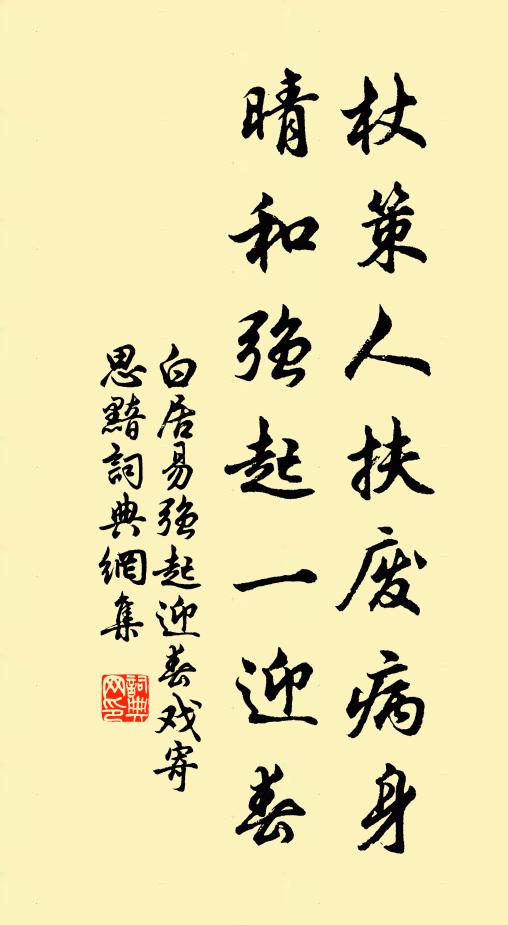 杖策人扶廢病身
晴和強起一迎春
白居易強起迎春戏寄
思黯詞典網集
詞典
网印